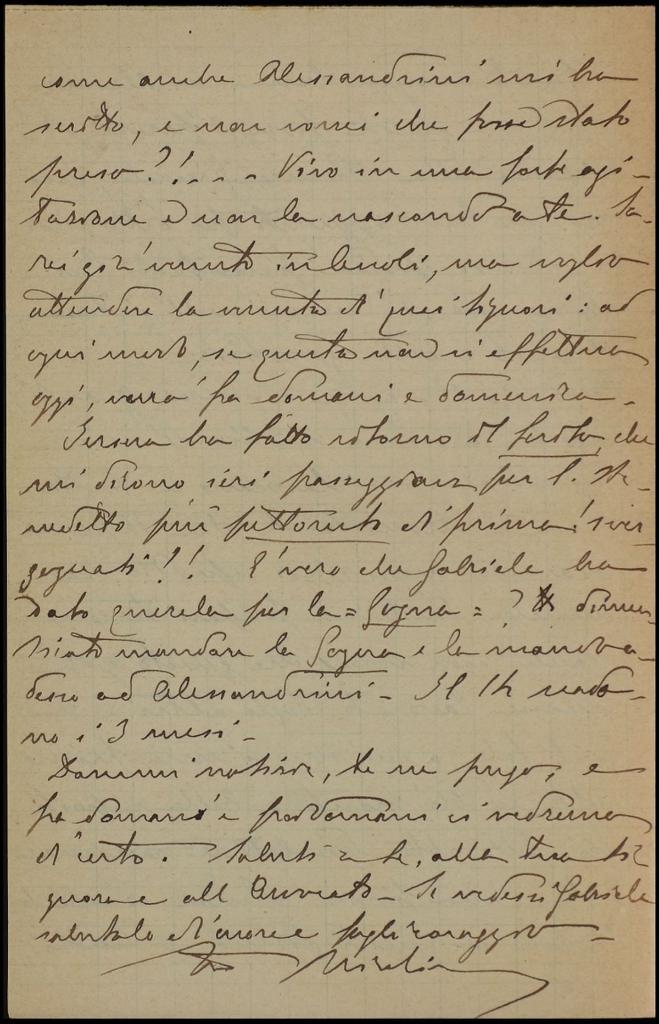 come anche Alessandrini mi ha
scritto, e non vorrei che fosse stato
preso?!... Vivo in una forte agi-
tazione e non la nascondo a te. Sa-
rei già venuto in, ma voglio
attendere la venuta di quei signori: ad
ogni modo, se questa non si effettua
oggi, verrà fra domani e domenica.
Iersera ha fatto ritorno il che
mi dicono ieri passeggiava per l.
più pettoruto di prima! sver-
gognati!! È vero che Gabriele ha
dato querela per la = Gogna = ?
mandare la Gogna e la
ad Alessandrini - Il 14 scado-
no i 3 mesi -
Dammi notizie, te ne prego, e
fra domani e posdomani ci vedremo
di certo. Saluti a te, alla tua Si-
gnora e all'Avvocato - Se vedessi Gabriele
salutalo di cuore e fagli coraggio -
Tuo